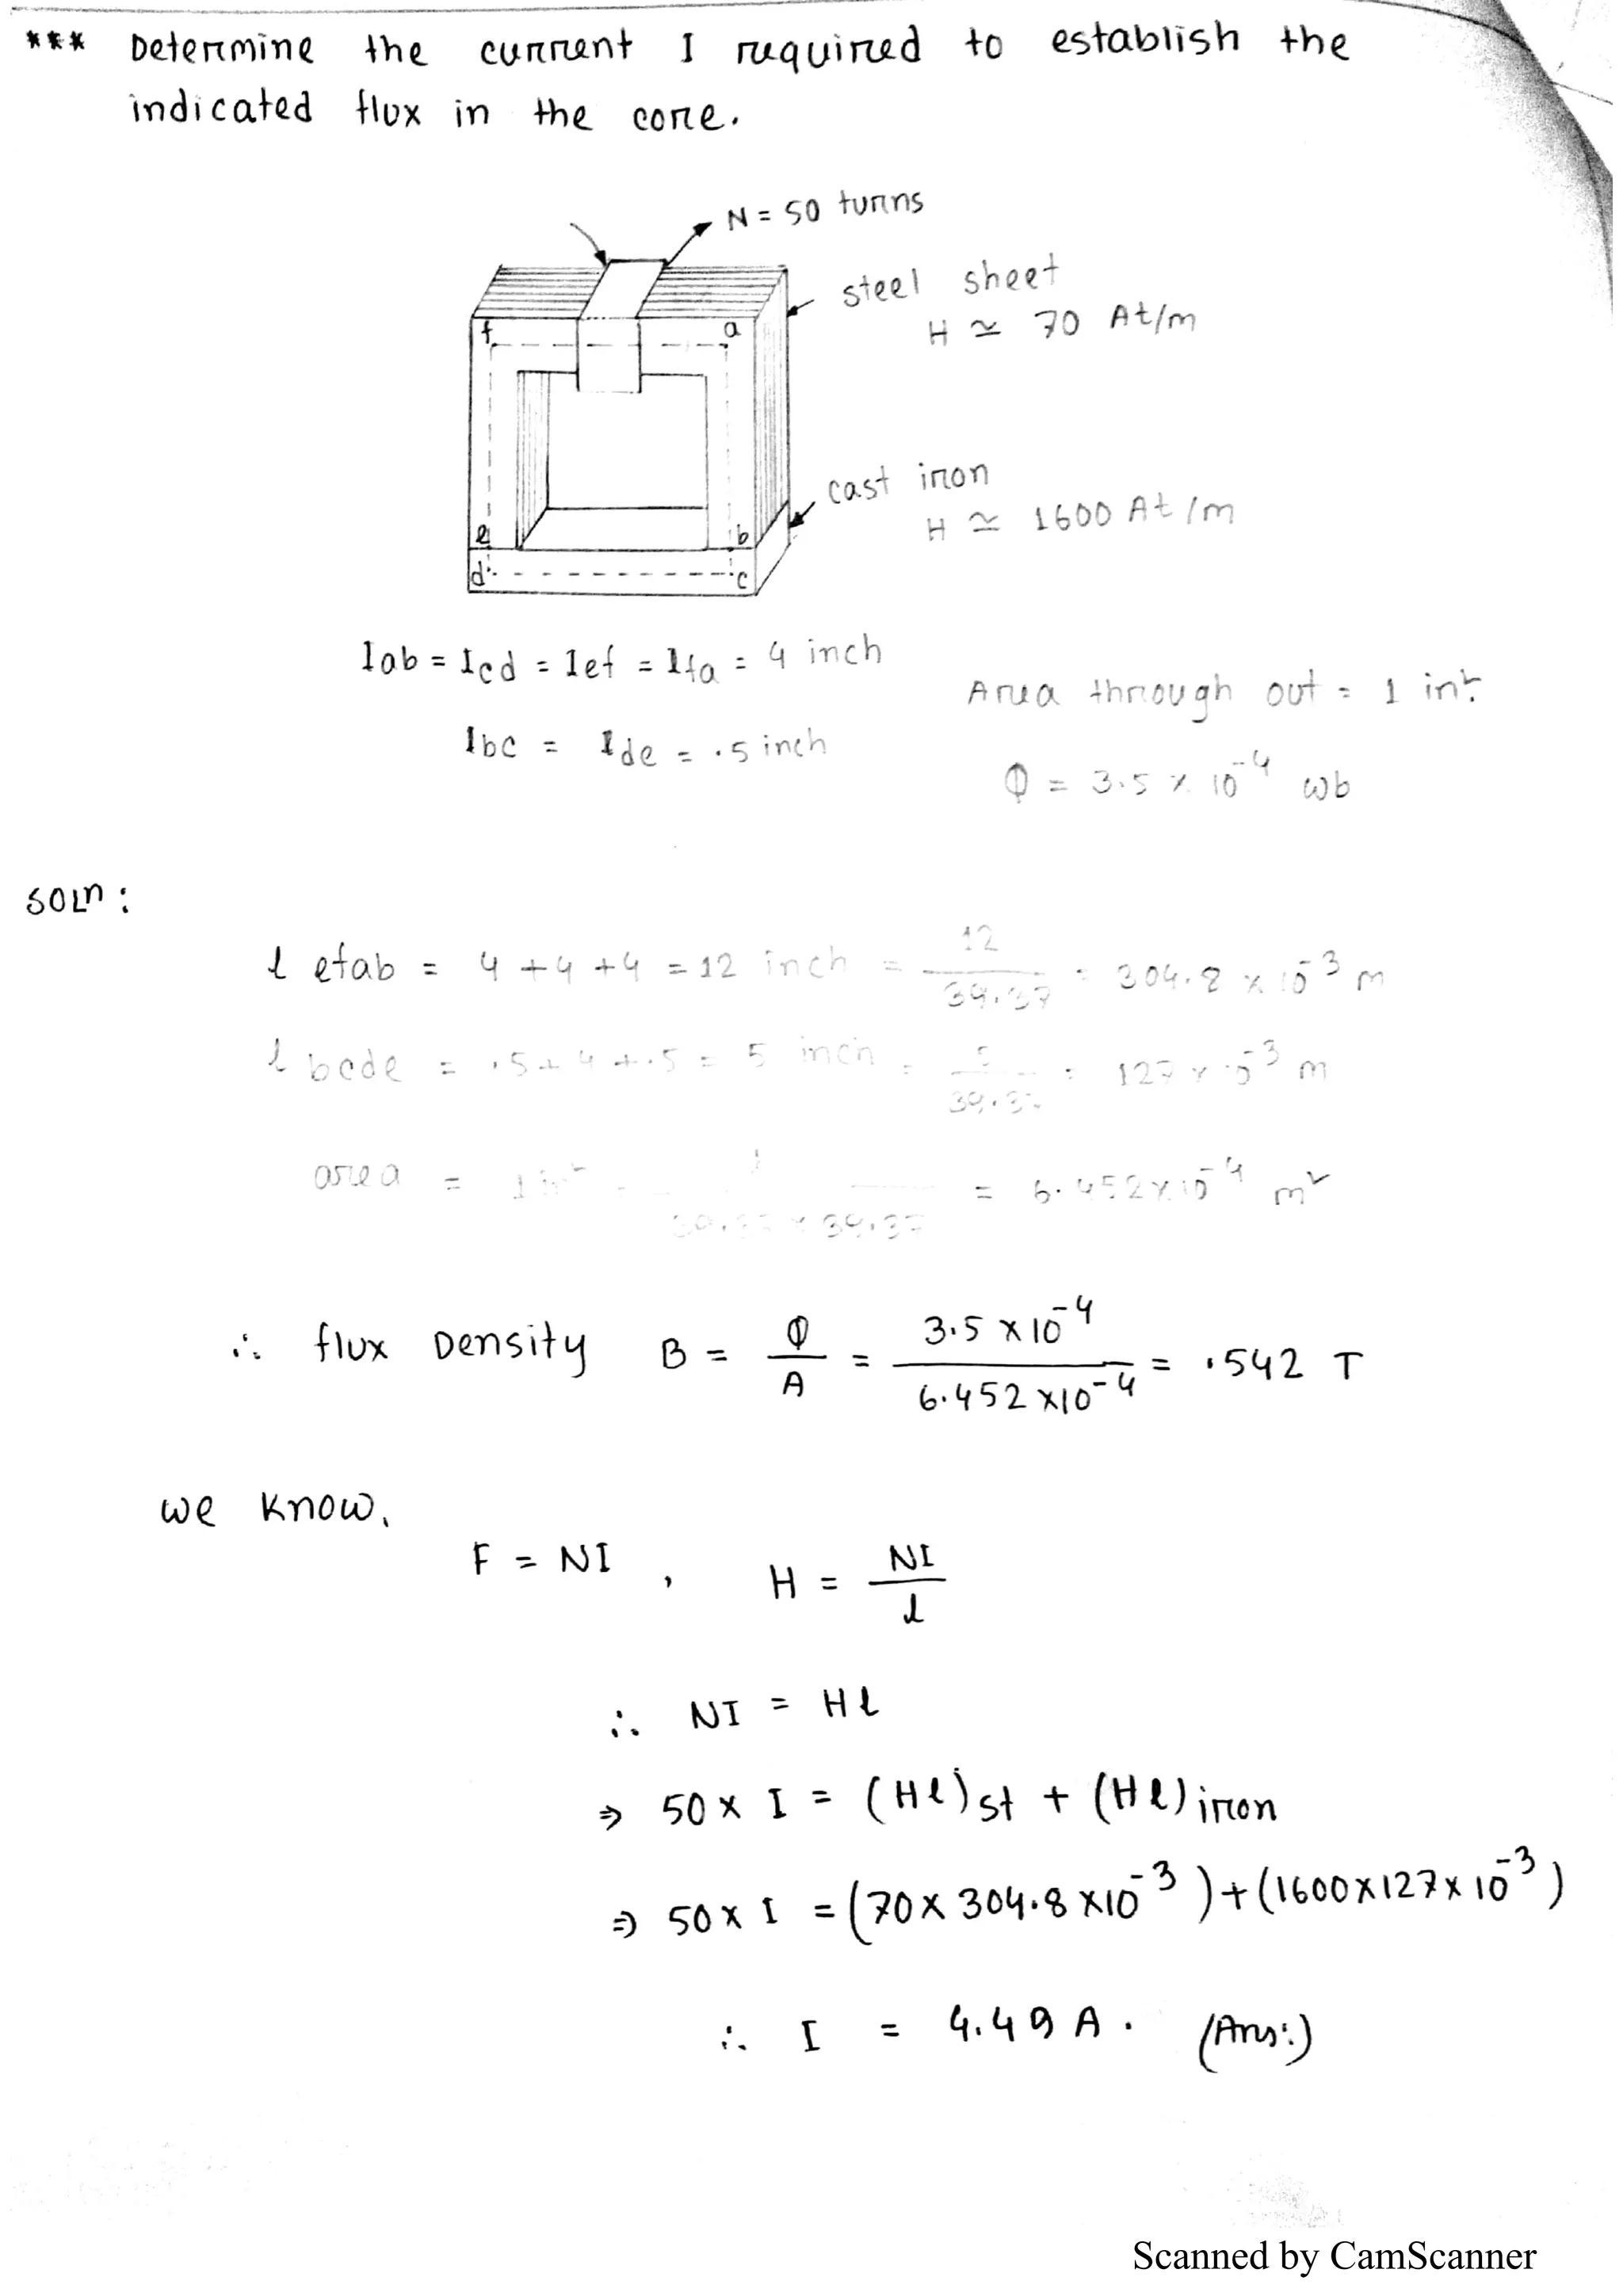 *** Determine the current I required to establish the
indicated flux in the core.
N = 50 turns
steel sheet
H ≃ 70 At/m
f a
cast iron
H ≃ 1600 At/m
e b
d c
lab = lcd = lef = lfa = 4 inch
Area through out = 1 in².
lbc = lde = .5 inch
Φ = 3.5 × 10⁻⁴ wb
Soln:
l efab = 4 + 4 + 4 = 12 inch = 12/39.37 = 304.8 × 10⁻³ m
l bcde = .5 + 4 + .5 = 5 inch = 5/39.37 = 127 × 10⁻³ m
area = 1 in² = 1/39.37 × 39.37 = 6.452 × 10⁻⁴ m²
∴ flux Density B = Φ/A = 3.5 × 10⁻⁴/6.452 × 10⁻⁴ = .542 T
we know,
F = NI , H = NI/l
∴ NI = Hl
⇒ 50 × I = (Hl)st + (Hl)iron
⇒ 50 × I = (70 × 304.8 × 10⁻³) + (1600 × 127 × 10⁻³)
∴ I = 4.49 A. (Ans:)
Scanned by CamScanner